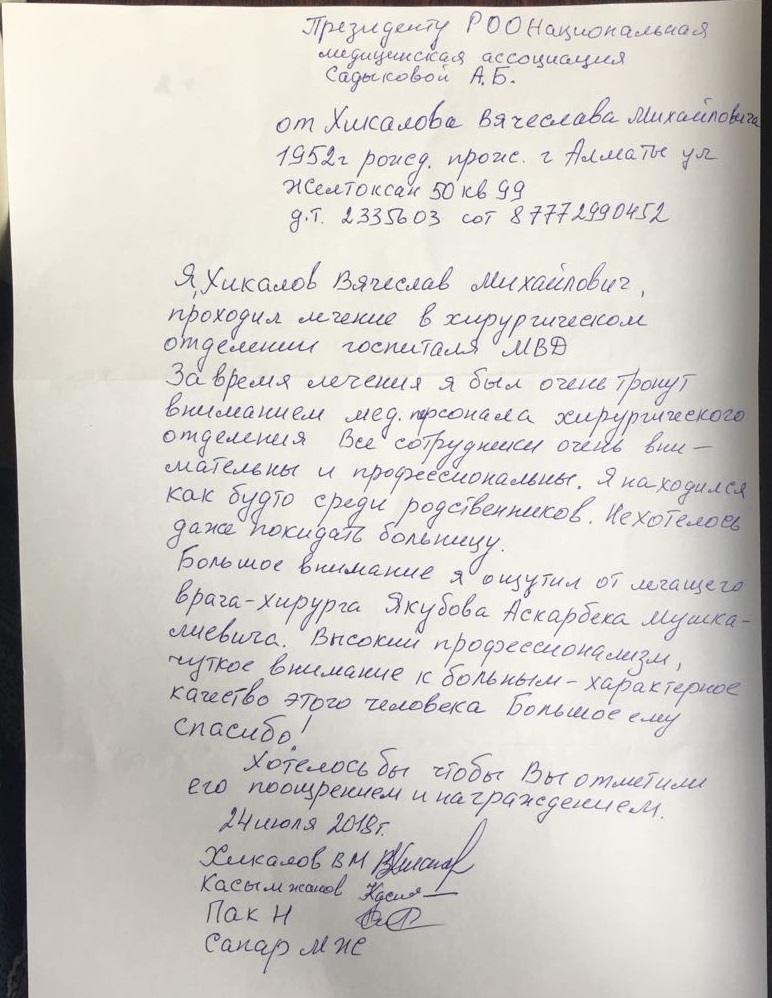 Президенту РОО Национальная
медицинская ассоциация
Садыковой А.Б.
от Хикалова Вячеслава Михайловича
1952г рожд. прож. г Алматы ул
Желтоксан 50 кв 99
д.т. 2335603 сот 87772990452
Я, Хикалов Вячеслав Михайлович,
проходил лечение в хирургическом
отделении госпиталя МВД
За время лечения я был очень тронут
вниманием мед. персонала хирургического
отделения Все сотрудники очень вни-
мательны и профессиональны. Я находился
как будто среди родственников. Не хотелось
даже покидать больницу.
Большое внимание я ощутил от лечащего
врача-хирурга Якубова Аскарбека Мушка-
лиевича. Высокий профессионализм,
чуткое внимание к больным - характерное
качество этого человека Большое ему
спасибо!
Хотелось бы чтобы Вы отметили
его поощрением и награждением.
24 июля 2019г.
Хикалов ВМ
Касымжанов
Пак Н
Сапар МЖ